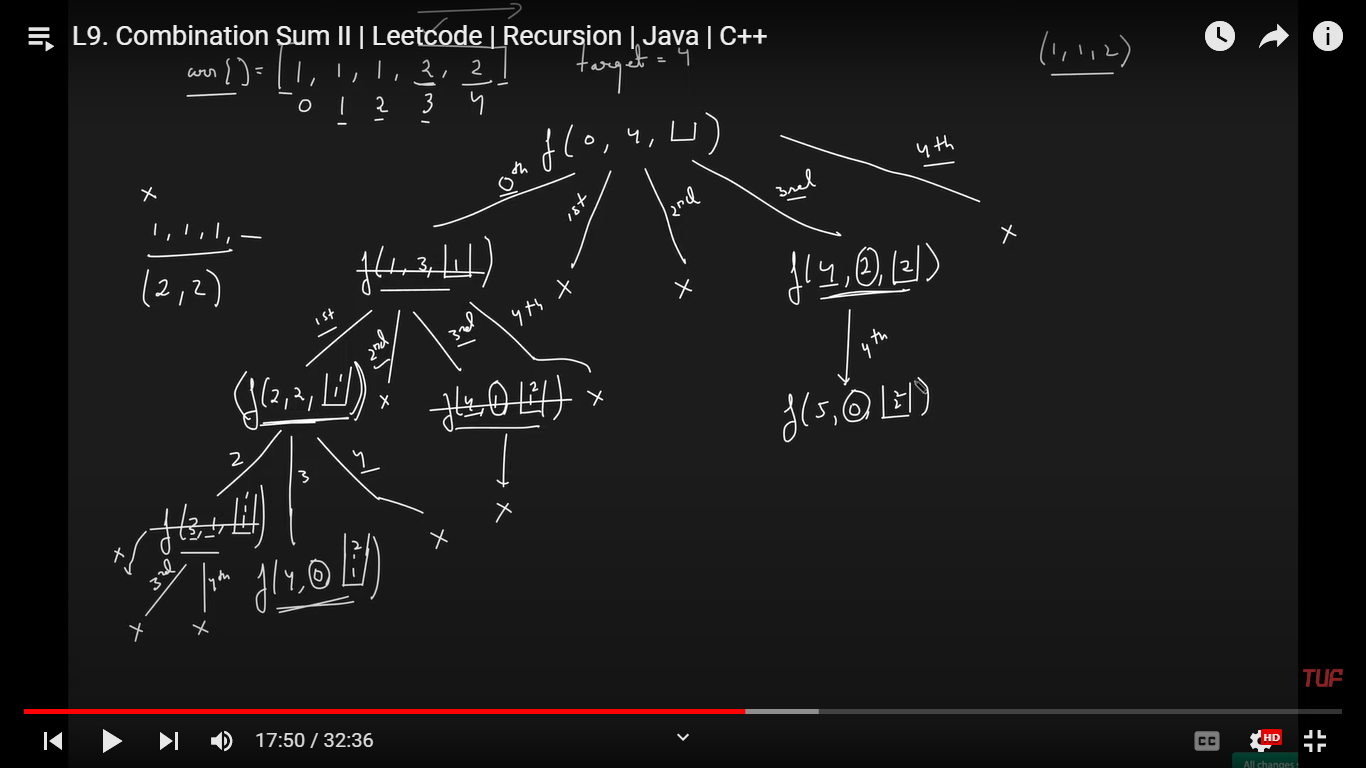 L9. Combination Sum II | Leetcode | Recursion | Java | C++
arr[] = [1, 1, 1, 2, 2]
target = 4
(1, 1, 2)
0 1 2 3 4
f(0, 4, ⊔)
0th
1st
2nd
3rd
4th
x
x
1, 1, 1, _
(2, 2)
f(1, 3, |1|)
x
x
f(4, 2, |2|)
1st
2nd
3rd
4th
4th
f(2, 2, |1 1|)
x
f(4, 1, |2 1|)
x
f(5, 0, |2 2|)
2
3
4
f(3, 1, |1 1 1|)
x
x
x
3rd
4th
f(4, 0, |2 1 1|)
x
x
TUF
17:50 / 32:36
CC
HD
All changes